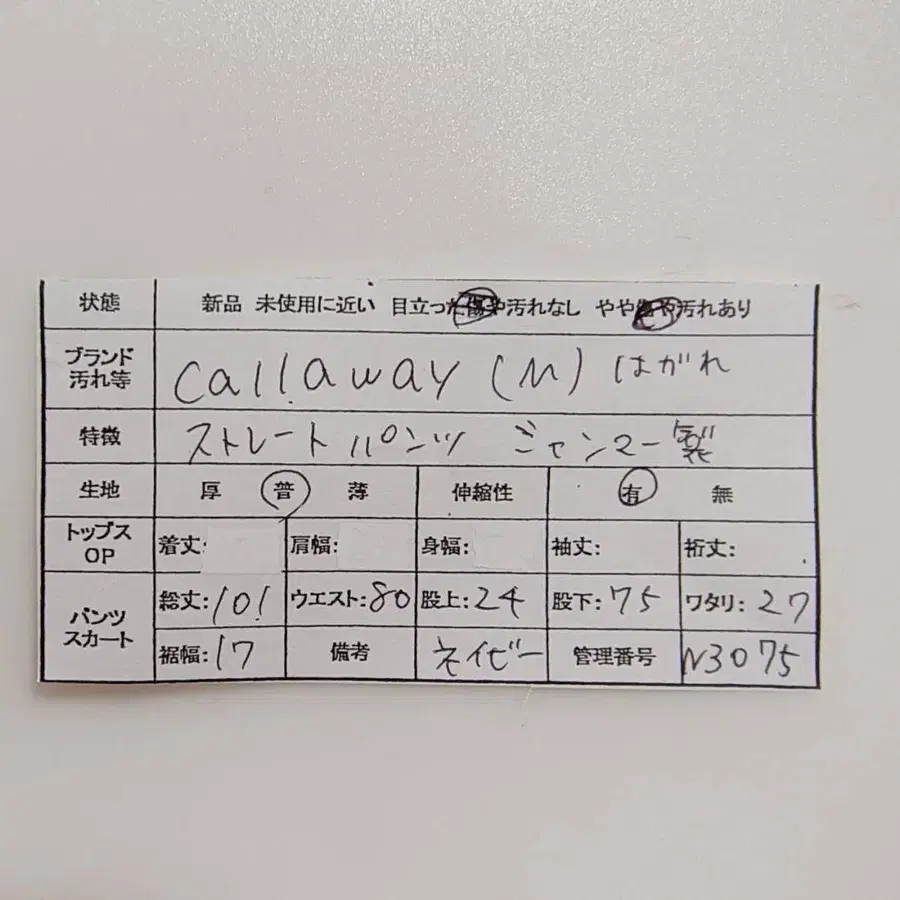 状態 新品 未使用に近い 目立った傷や汚れなし やや傷や汚れあり
ブランド 汚れ等 Callaway (M) はがれ
特徴 ストレートパンツ ミャンマー製
生地 厚 普 薄 伸縮性 有 無
トップス OP 着丈: 肩幅: 身幅: 袖丈: 裄丈:
パンツ スカート 総丈:101 ウエスト:80 股上:24 股下:75 ワタリ:27
裾幅:17 備考 ネイビー 管理番号 N3075